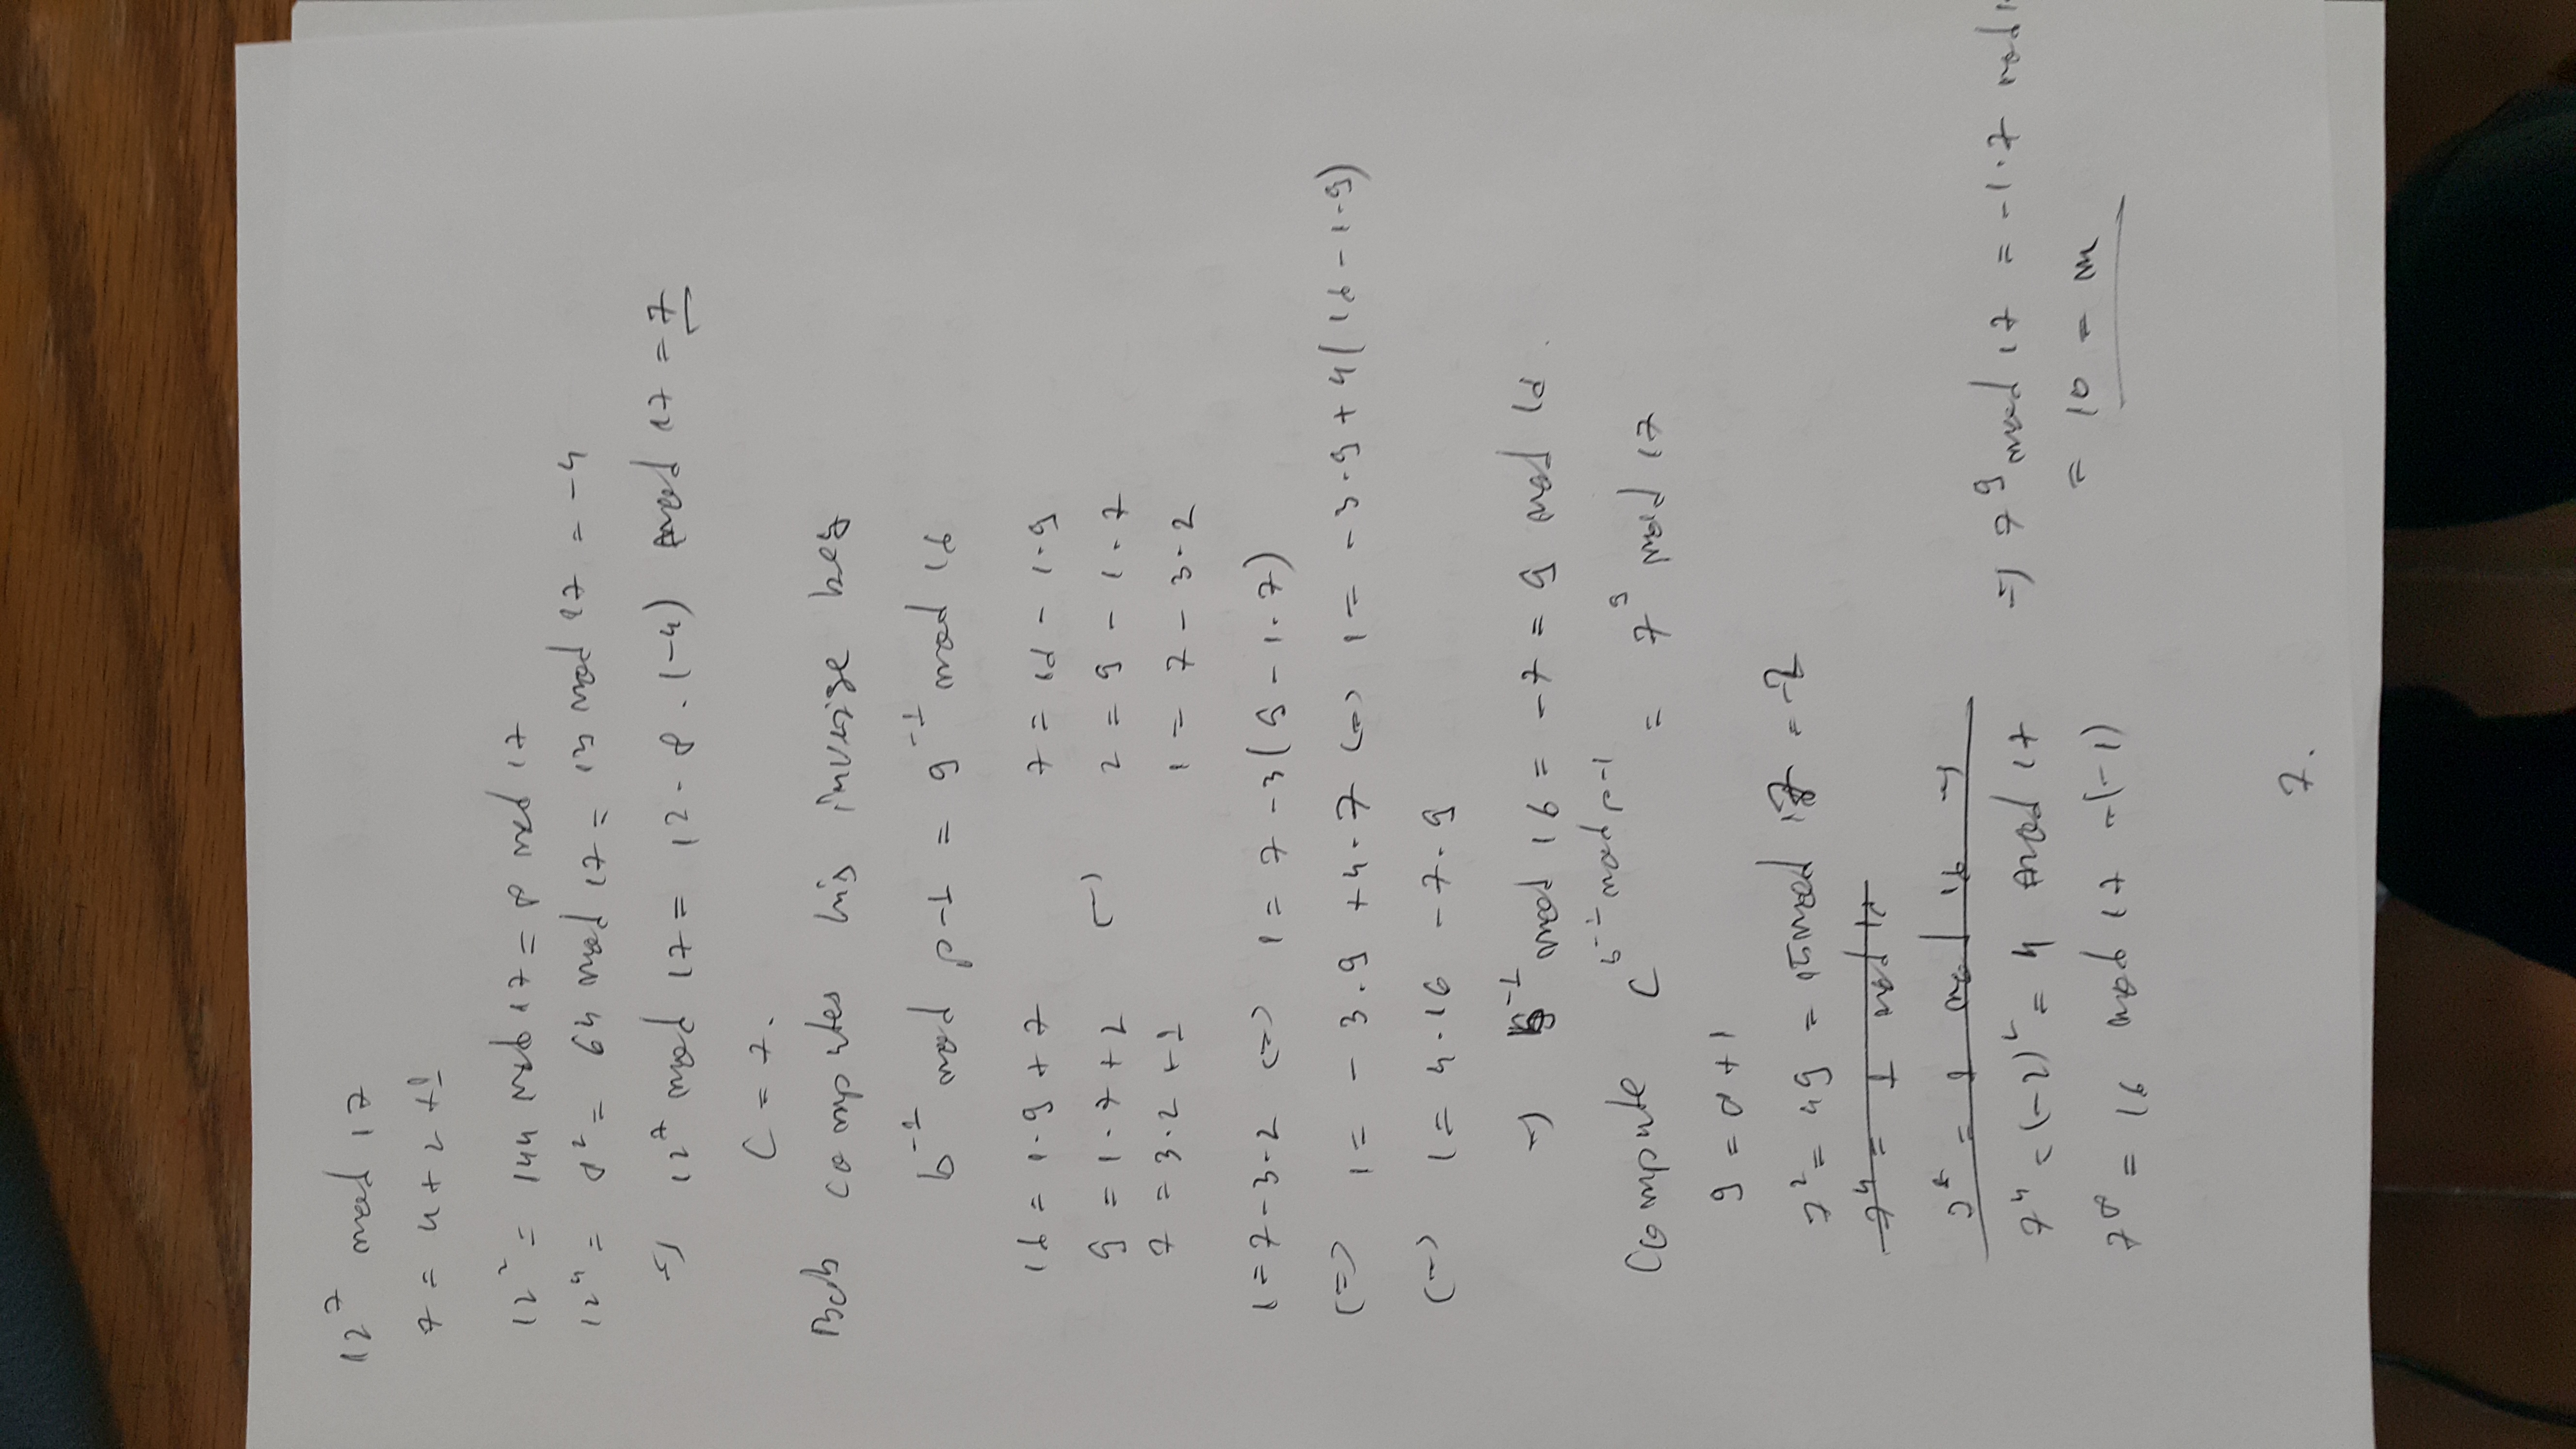 12⁷ mod 17
7 = 4 + 2 + 1
12² = 144 mod 17 = 8 mod 17
12⁴ = 8² = 64 mod 17 = 13 mod 17 = -4
=> 12⁷ mod 17 = 12 · 8 · (-4) mod 17 = 7
C = 7.
Bob computes his inverse key
b⁻¹ mod p-1 = 9⁻¹ mod 16
16 = 1·9 + 7 7 = 16 - 1·9
9 = 1·7 + 2 <=> 2 = 9 - 1·7
7 = 3·2 + 1 1 = 7 - 3·2
1 = 7 - 3·2 <=> 1 = 7 - 3(9 - 1·7)
<=> 1 = -3·9 + 4·7 <=> 1 = -3·9 + 4(16 - 1·9)
<=> 1 = 4·16 - 7·9
=> b⁻¹ mod 16 = -7 = 9 mod 16.
Compute C^(b⁻¹ mod p-1) = 7⁹ mod 17
9 = 8 + 1
7² = 49 = 15 mod 17 = -2
7⁴ = 1 mod 16
= 1 mod 16 =>
7⁴ = (-2)² = 4 mod 17 => 7⁹ mod 17 = -1·7 mod 1
= 10 = m
7⁸ = 16 mod 17 = (-1)
7.